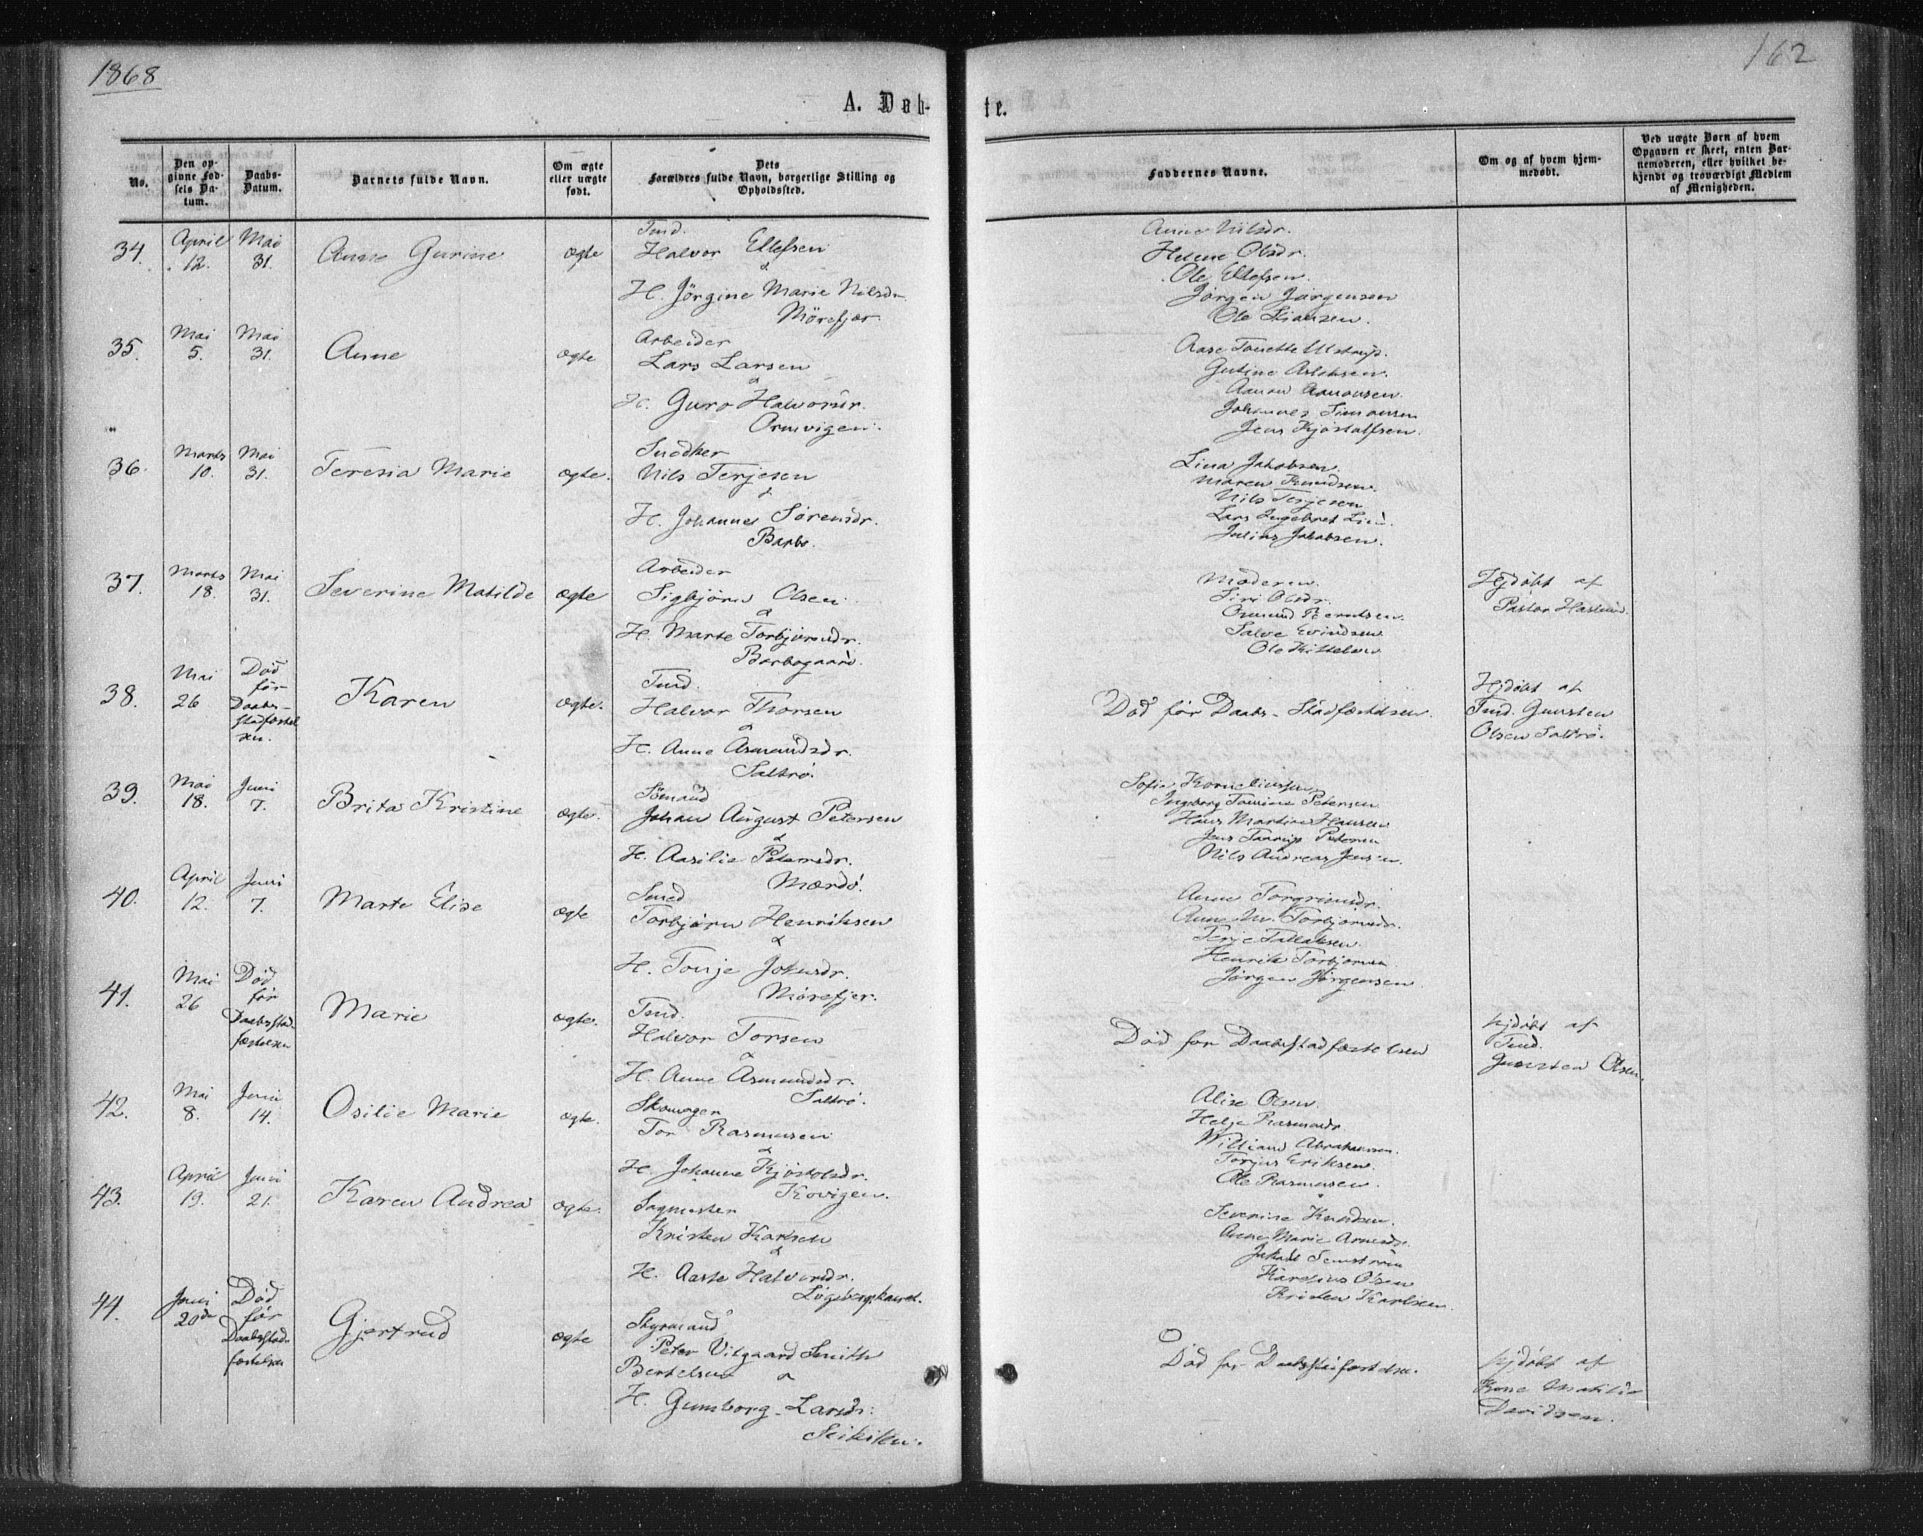 1868
162
A. Døb-
te.
No.
Den op-
givne Fød-
sels Da-
tum.
Daabs-
Datum.
Barnets fulde Navn.
Om ægte
eller uægte
født.
Dets
Forældres fulde Navn, borgerlige Stilling og
Opholdssted.
Faddernes Navne.
Om og af hvem hjem-
medøbt.
Ved uægte Børn af hvem
Opgaven er skeet, enten Bar-
nemoderen, eller hvilket be-
kjendt og troværdigt Medlem
af Menigheden.
34.
April
12.
Mai
31.
Anne Gurine
ægte
Tmd.
Halvor Ellefsen
&
H. Jörgine Marie Nilsdr.
Mörefjær.
Anne Nilsdr.
Helene Olsdr.
Ole Ellefsen.
Jørgen Jørgensen
Ole
35.
Mai
5.
Mai
31.
Anne
ægte
Arbeider
Lars Larsen
&
H. Guro Halvorsdr.
Ormvigen.
Aase Tonette
Gutine Aslaksen.
Aanon Aanonsen.
Johannes Simonsen
Jens Kjøstolfsen.
36.
Marts
10.
Mai
31.
Teresia Marie
ægte.
Snedker
Nils Terjesen
&
H. Johanne Sörensdr.
Barbo.
Lina Jakobsen.
Maren Knudsen.
Nils Terjesen
Lars Ingebret
Julius Jakobsen.
37.
Marts
18.
Mai
31.
Severine Matilde
ægte
Arbeider
Sigbjörn Olsen
&
H. Marte Torbjörnsdr.
Barbogaard.
Moderen.
Siri Olsdr.
Osmund Berntsen.
Salve Evindsen
Ole Kittelsen
Hjdøbt af
Pastor
38.
Mai
26
Död
för
Daabs-
stadfæstel
sen.
Karen
ægte.
Tmd.
Halvor Thorsen
&
H. Anne Asmundsdr.
Saltrö.
Död för Daabs-Stadfæstelsen.
Hjdøbt af
Tmd. Gunsten
Olsen Saltrö.
39.
Mai
18.
Juni
7.
Brita Kristine
ægte.
Sömand
Johan August Petersen
&
H. Aasilie Petersdr.
Mærdö.
Sofie Korneliussen
Ingborg Tomine Petersen
Hans Martin Hansen
Jens Petersen
Nils Andreas Jensen.
40.
April
12.
Juni
7.
Marte Elise
ægte
Smed
Torbjørn Henriksen
&
H. Tonje Johnsdr.
Mörefjer.
Anne Torgrimsdr.
Anne M. Torbjørnsdr.
Terje Tallaksen.
Henrik Torbjørnsen
Jørgen Jørgensen.
41.
Mai
26
Död
för
Daabsstad
fæstelsen
Marie
ægte.
Tmd.
Halvor Torsen
&
H. Anne Asmundsdr.
Saltrö.
Död for Daabsstadfæstelsen
hjdøbt af
Tmd.
Gunsten Olsen.
42.
Mai
8.
Juni
14.
Osilie Marie
ægte.
Skomager
Tor Rasmusen
&
H. Johanne Kjöstolsdr.
Kovigen.
Alise Olsen.
Helje Rasmusdr.
William Abrahamsen.
Torjus Eriksen.
Ole Rasmusen.
43.
April
19.
Juni
21.
Karen Andrea
ægte.
Sagmester
Kristen Karlsen
&
H. Aaste Halvorsdr.
Severine Knudsen.
Anne Marie Arnesdr.
Jakob
Karelius Olsen
Kristen Karlsen.
44.
Juni
20de
Död
før
Daabsstad-
fæstelsen
Gjertrud
ægte
Styrmand
Peter Vilgaard Smith
Bertelsen &
H. Gunborg Larsdr.
Död for Daabsstadfæstelsen.
hjdøbt af
Matilde
Davidsen.